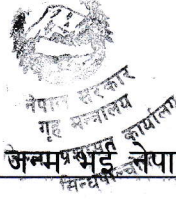 नेपाल सरकार
गृह मन्त्रालय
कार्यालय
जन्म भई नेपा